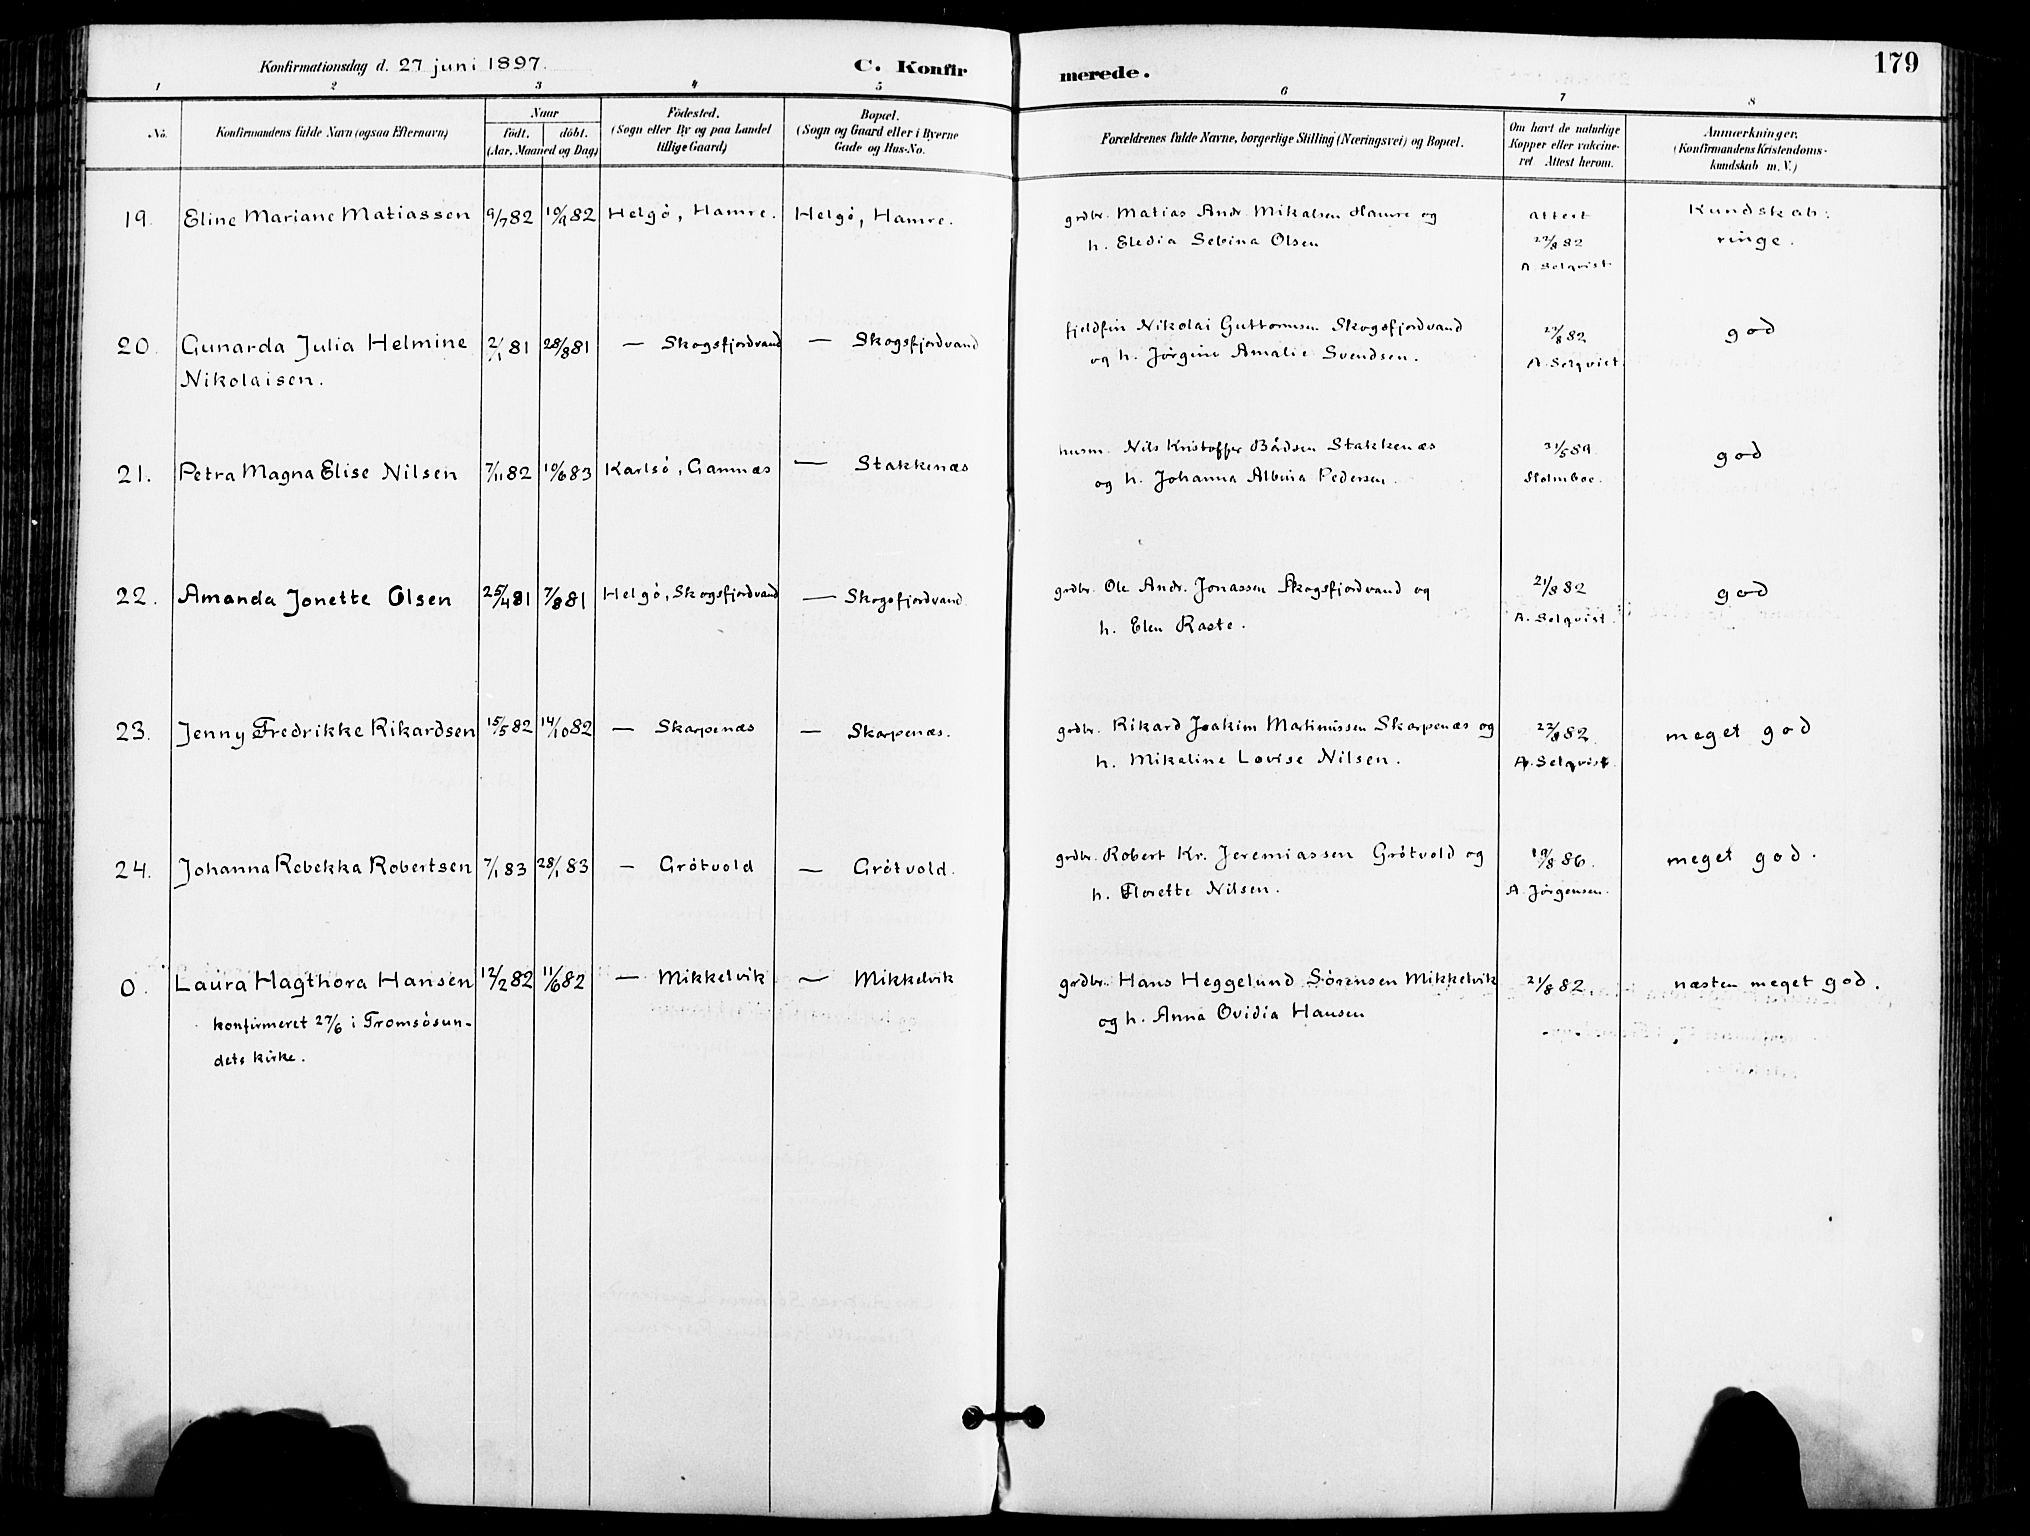 Konfirmationsdag d. 27 juni 1897.
C. Konfirmerede.
179
1 2 3 4 5 6 7 8
No.
Konfirmandens fulde Navn (ogsaa Efternavn)
Naar
født. døbt.
(Aar, Maaned og Dag)
Fødested.
(Sogn eller By og paa Landet
tillige Gaard)
Bopæl.
(Sogn og Gaard eller i Byerne
Gade og Hus-No.
Forældrenes fulde Navne, borgerlige Stilling (Næringsvei) og Bopæl.
Om havt de naturlige
Kopper eller vakcine-
ret Attest herom.
Anmærkninger,
(Konfirmandens Kristendoms-
kundskab m. V.)
19. Eline Mariane Matiassen 9/7 82 10/9 82 Helgö, Hamre. Helgö, Hamre. grdbr. Matias Andr. Mikalsen Hamre og attest Kundskab:
h. Eledia Sebina Olsen 22/8 82 ringe.
A. Selqvist
20. Gunarda Julia Helmine 2/1 81 28/8 81 — Skogsfjordvand — Skogsfjordvand fjeldfin Nikolai Guttormsen Skogsfjordvand 22/8 82 god
Nikolaisen. og h. Jörgine Amalie Svendsen. A. Selqvist
21. Petra Magna Elise Nilsen 7/11 82 10/6 83 Karlsö, Gamnæs — Stakkenæs husm. Nils Kristoffer Bådsen Stakkenæs 21/5 89 god
og h. Johanna Albina Pedersen. Holmboe.
22. Amanda Jonette Olsen 25/4 81 7/8 81 Helgö, Skogsfjordvand — Skogsfjordvand grdbr. Ole Andr. Jonassen Skogsfjordvand og 21/8 82 god
h. Elen Raste. A. Selqvist.
23. Jenny Fredrikke Rikardsen 15/5 82 14/10 82 — Skarpenæs — Skarpenæs. grdbr. Rikard Joakim Martinussen Skarpenæs og 22/8 82 meget god
h. Mikaline Lovise Nilsen. A. Selqvist.
24. Johanna Rebekka Robertsen 7/1 83 28/1 83 — Grötvold — Grötvold. grdbr. Robert Kr. Jeremiassen Grötvold og 19/8 86. meget god.
h. Florette Nilsen. A. Jörgensen.
0. Laura Hagthora Hansen 12/2 82 11/6 82 — Mikkelvik — Mikkelvik grdbr. Hans Heggelund Sörensen Mikkelvik 21/8 82 næsten meget god.
konfirmeret 27/6 i Tromsösun- og h. Anna Ovidia Hansen
dets kirke.